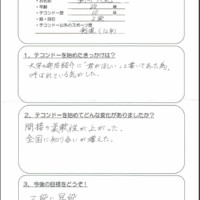 ・年齢
・テコンドー歴
・段、級
・テコンドー以外のスポーツ歴
1、テコンドーを始めたきっかけは？
大学の部活紹介に「君がほしい」と書いてあった為、
呼ばれている気がした。
2、テコンドーを始めてどんな変化がありましたか？
間接の柔軟性が上がった。
全国に知り合いが増えた。
3、今後の目標をどうぞ！